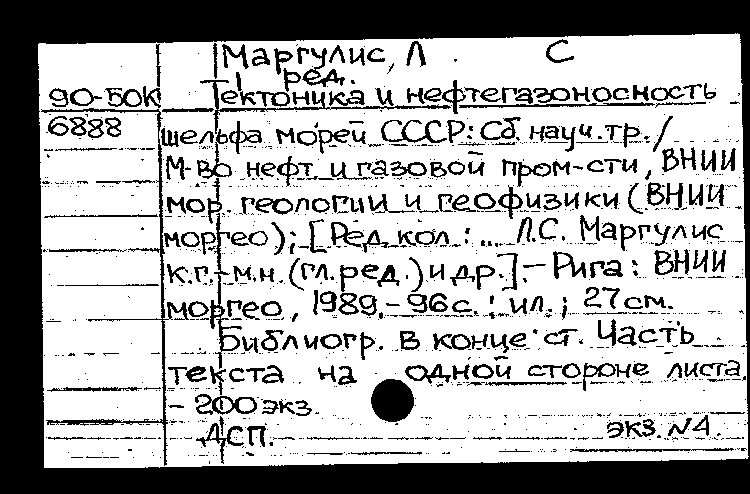 Маргулис, Л. С
ред.
90-50К Тектоника и нефтегазоносность
6888 шельфа морей СССР: Сб. науч. тр. /
М-во нефт. и газовой пром-сти, ВНИИ
мор. геологии и геофизики (ВНИИ
моргео); [Ред. кол.: ... Л.С. Маргулис
к.г.-м.н. (гл. ред.) и др.]. - Рига: ВНИИ
моргео, 1989. - 96 с. : ил.; 27 см.
Библиогр. в конце ст. Часть
текста на одной стороне листа.
- 200 экз.
ДСП. экз. N4.